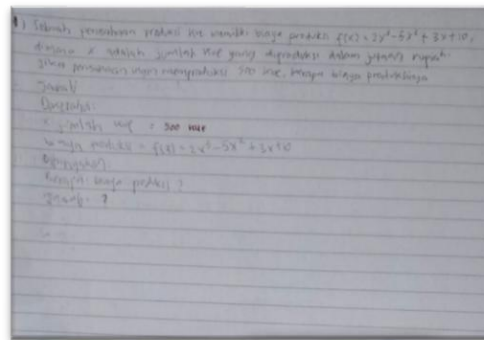 1) Sebuah perusahaan produksi kue memiliki biaya produksi f(x) = 2x³ - 5x² + 3x + 10,
dimana x adalah jumlah kue yang diproduksi dalam jutaan rupiah.
Jika perusahaan ingin memproduksi 500 kue, berapa biaya produksinya
Jawab
Diketahui:
x jumlah kue = 500 kue
biaya produksi = f(x) = 2x³ - 5x² + 3x + 10
Ditanyakan
Berapa biaya produksi ?
Jawab : ?